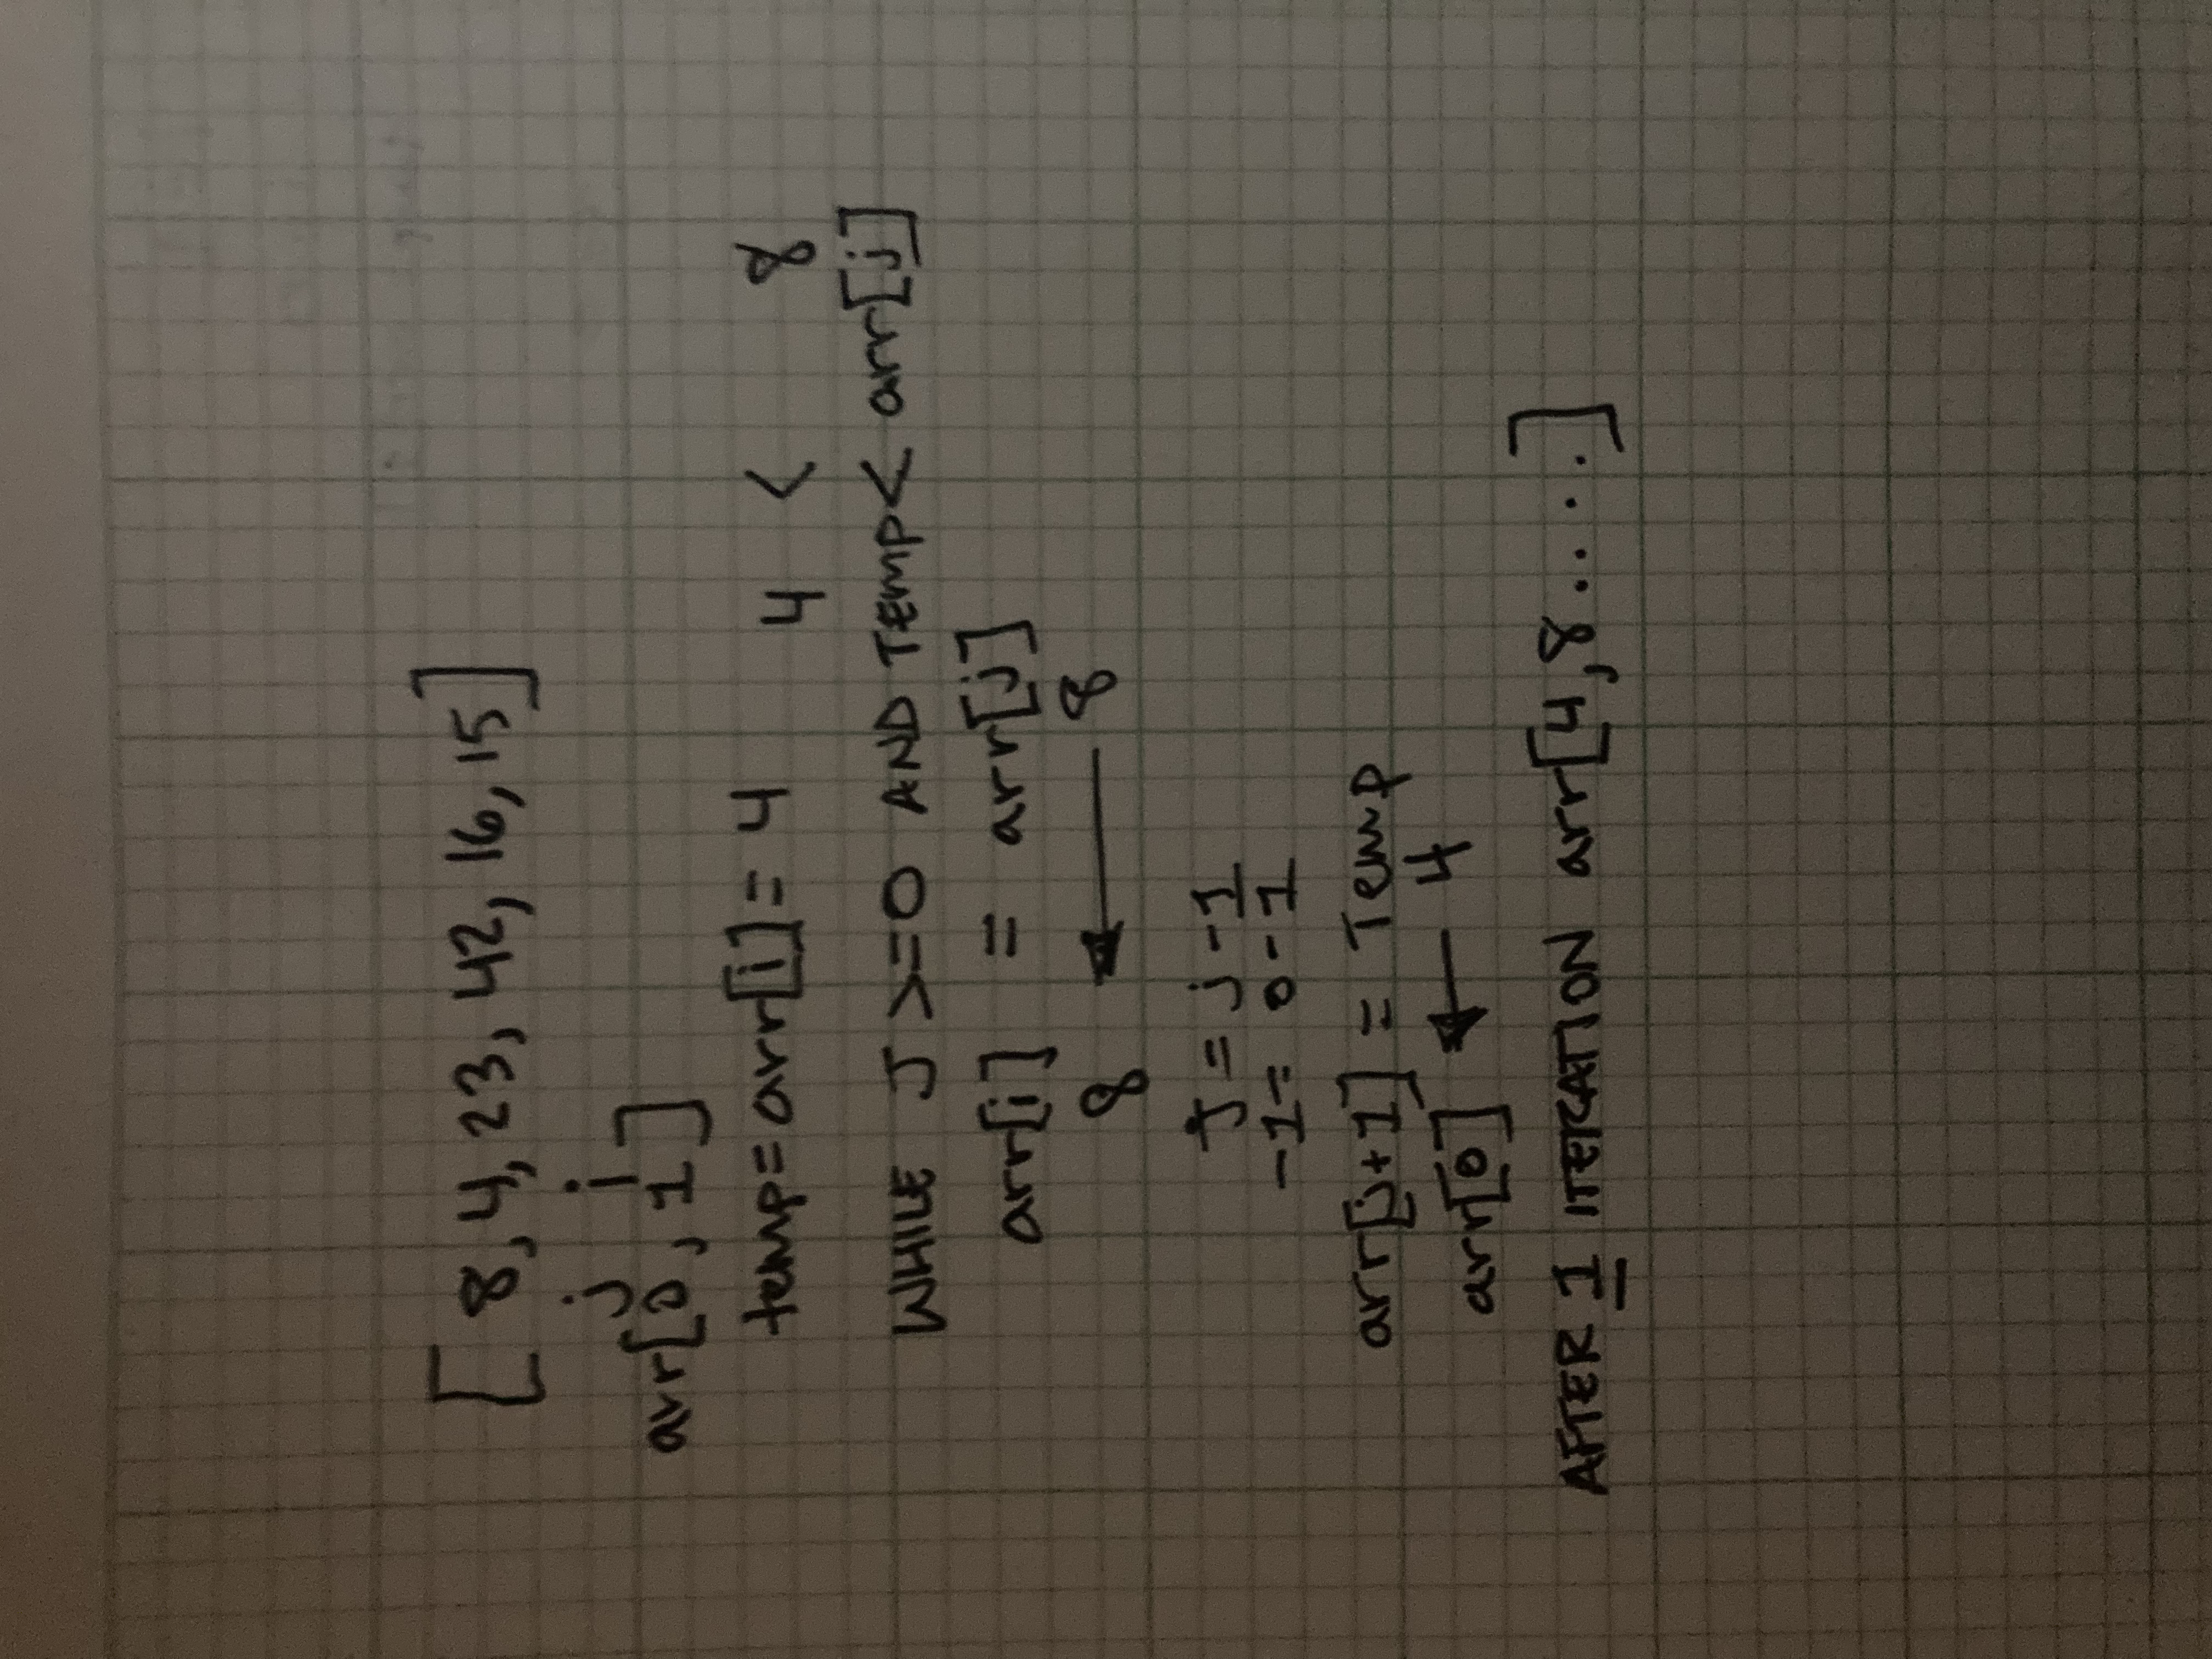 [ 8, 4, 23, 42, 16, 15]
j i
arr[0, 1]
temp = arr[i] = 4 4 < 8
WHILE J >=0 AND TEMP < arr[j]
arr[i] = arr[j]
8 ← 8
J = j - 1
-1 = 0 - 1
arr[j+1] = Temp
arr[0] ← 4
AFTER 1 ITERATION arr[4,8.....]